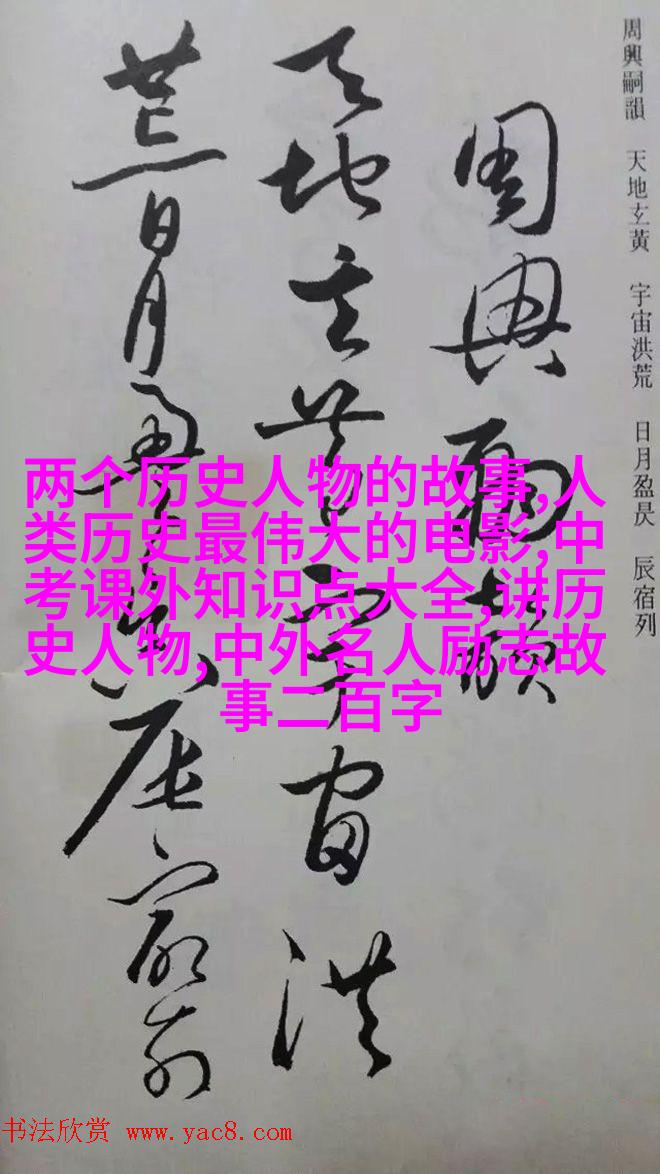 周興嗣韻 天地玄黃 宇宙洪荒 日月盈昃 辰宿列
周興嗣韻
天地玄黃宇宙洪
荒日月盈昃辰宿列
两个历史人物的故事,人
类历史最伟大的电影,中
考课外知识点大全,讲历
史人物,中外名人励志故
事二百字
书法欣赏 www.yac8.com